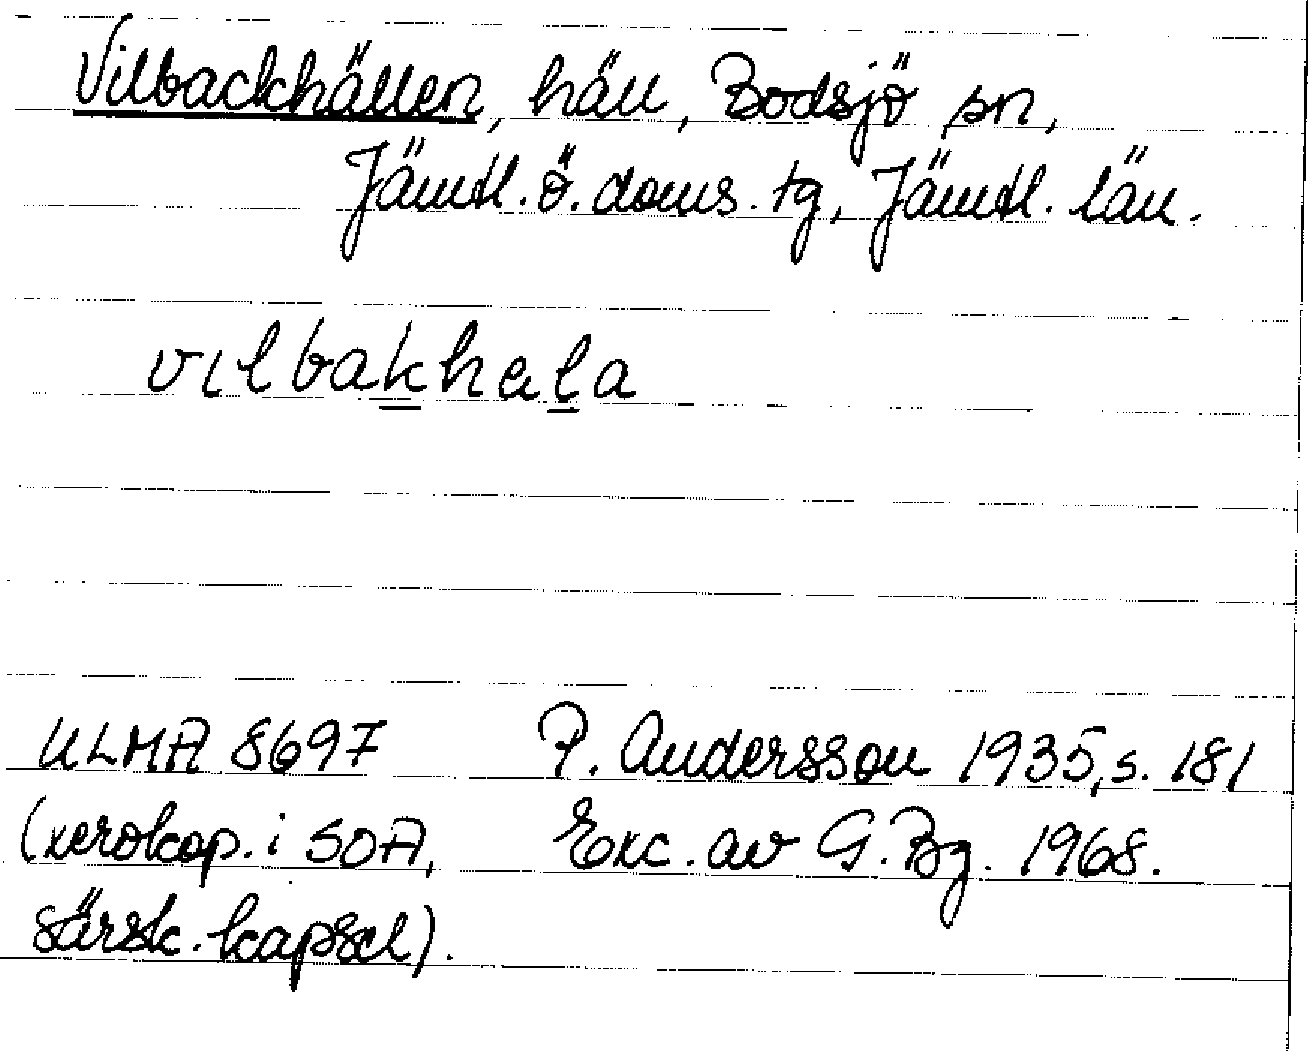 Vilbackhällen, häll, Bodsjö sn,
Jämtl. ö. doms. tg, Jämtl. län.
vɩlbakhala
ULMA 8697 P. Andersson 1935, s. 181
(xerokop. i SOA, Exc. av G. Bg. 1968.
särsk. kapsel).